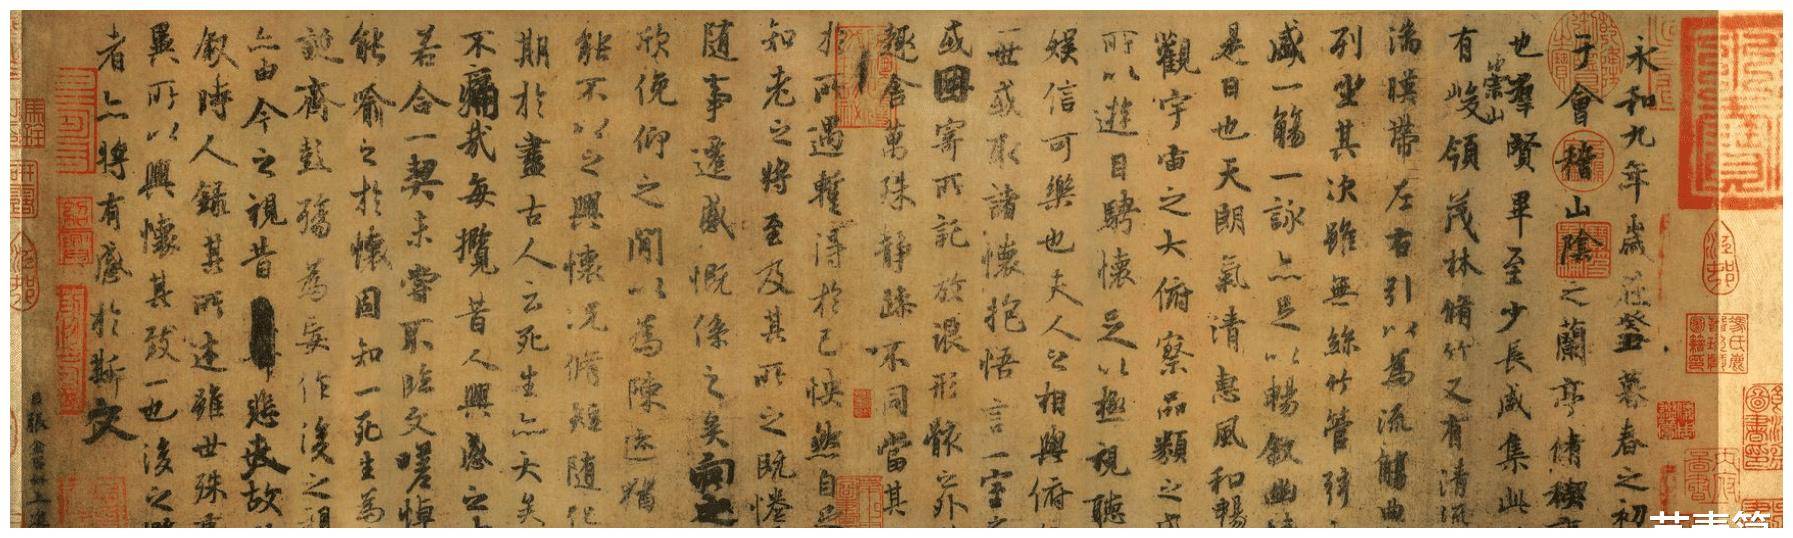 永和九年歲在癸丑暮春之初
于會稽山陰之蘭亭脩禊
也羣賢畢至少長咸集此
有崇山峻領茂林脩竹又有清流
湍暎帶左右引以為流觴曲
列坐其次雖無絲竹管弦
盛一觴一詠亦足以暢敘幽
是日也天朗氣清惠風和暢
觀宇宙之大俯察品類之
所以遊目騁懷足以極視聽
娛信可樂也夫人之相與俯
一世或取諸懷抱悟言一室之
或因寄所託放浪形骸之外
趣舍萬殊靜躁不同當其
於所遇暫得於己怏然自足
知老之將至及其所之既惓
隨事遷感慨係之矣向之
欣俛仰之閒以為陳迹猶
能不以之興懷況脩短隨化
期於盡古人云死生亦大矣
不痛哉每攬昔人興感之
若合一契未嘗不臨文嗟悼
能喻之於懷固知一死生為
誕齊彭殤為妄作後之視
亦由今之視昔悲夫故
敘時人錄其所述雖世殊
異所以興懷其致一也後之
者亦將有感於斯文